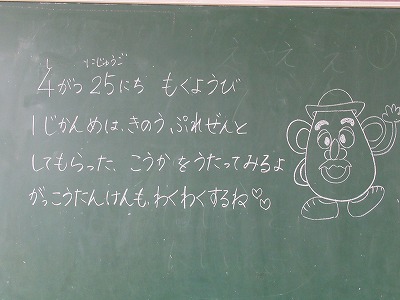 し にじゅうご
4がつ 25にち もくようび
1じかんめは、きのう、ぷれぜんと
してもらった、こうかをうたってみるよ
がっこうたんけんも、わくわくするね♡♡